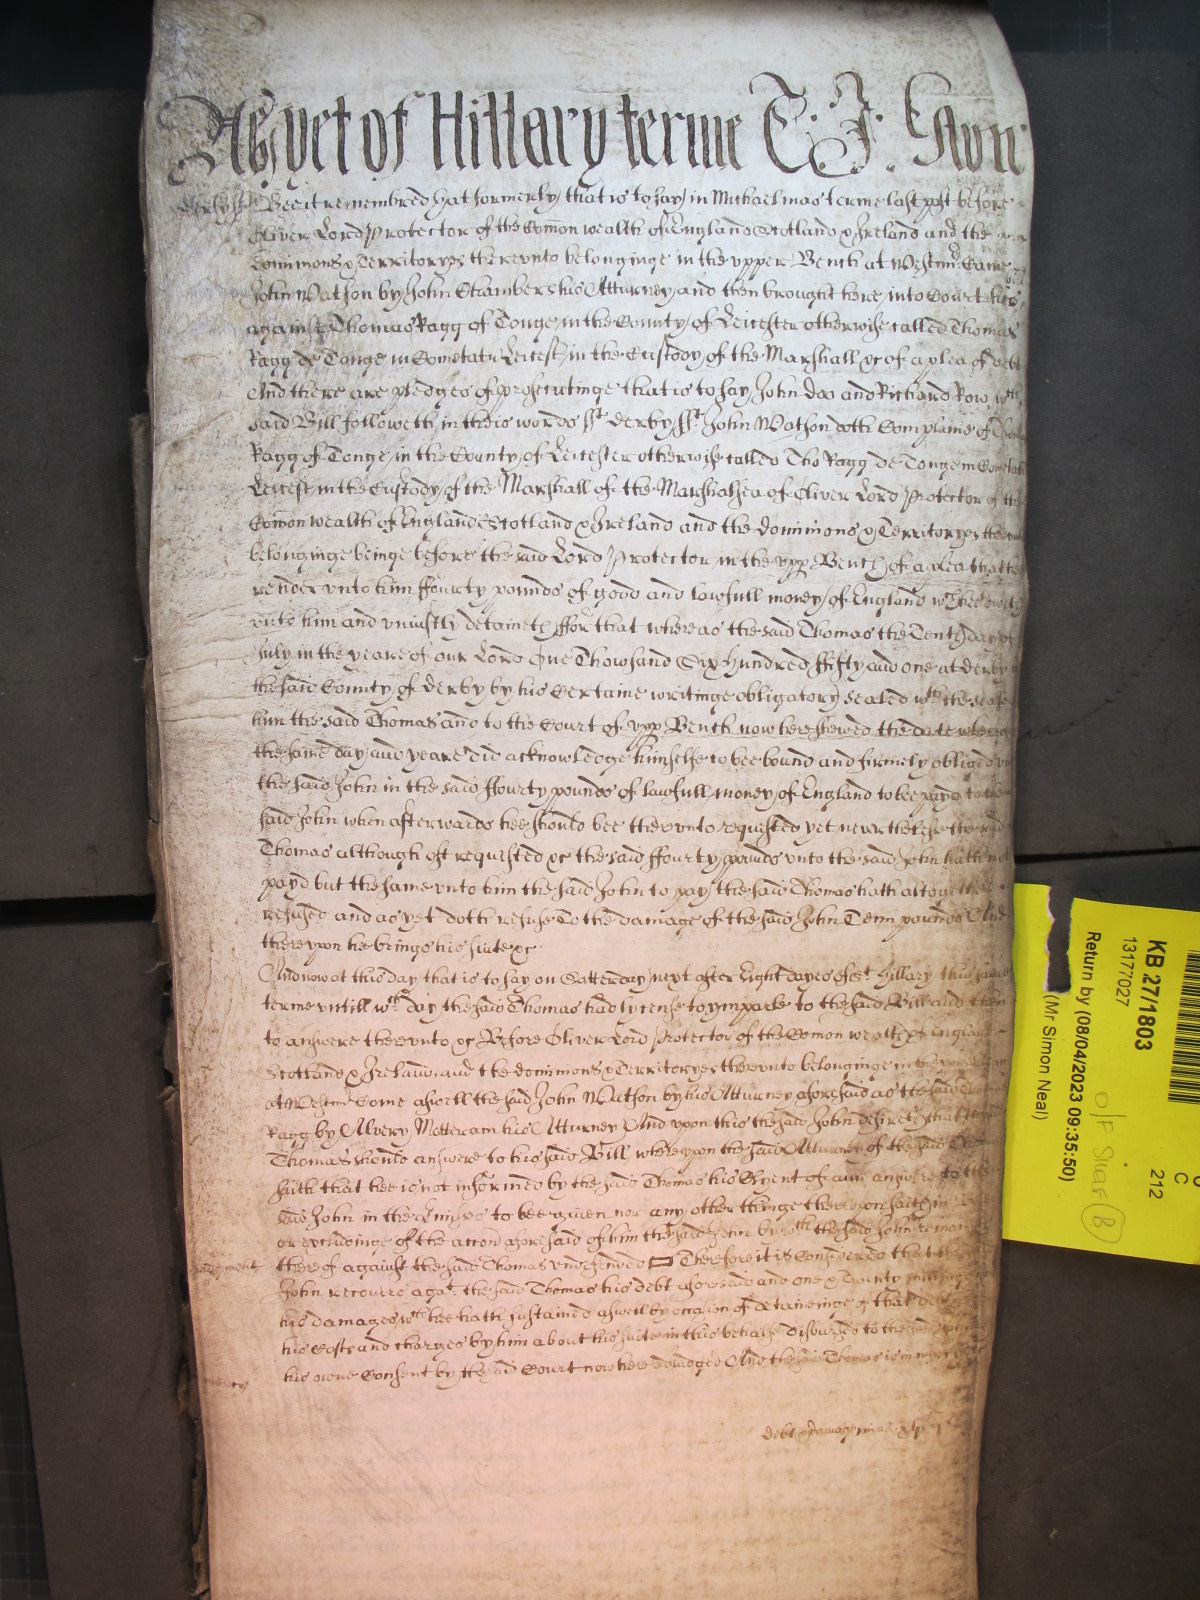 As yet of Hillary terme
derby ss Bee it remembred that formerly that is to say in Michaelmas terme last past before
Oliver Lord Protector of the Comon wealth of England Scotland & Ireland and the
dominions & Territoryes thereunto belonginge in the upper Bench at Westmr Came
John Watson by John Chambers his Atturney and then brought here into Court his
against Thomas Ragg of Tonge in the County of Leicester otherwise called Thomas
Ragg de Tonge in Cometatu Leicest in the Custody of the Marshall &c of a plea of debt
And there are pledges of prosecutinge that is to say John doo and Richard Row wch
said Bill followeth in theis words sst derby sst John Watson doth Complaine of
Ragg of Tonge in the County of Leicester otherwise called Tho Ragg de Tonge in
Leicest in the Custody of the Marshall of the Marshalsea of Oliver Lord Protector of the
Comon wealth of England Scotland & Ireland and the dominions & Territoryes
belonginge beinge before the said Lord Protector in the upp Bench of a plea that
render unto him ffourty pounds of good and lawfull money of England wch hee oweth
unto him and uniustly detaineth ffor that whereas the said Thomas the Tenth day of
July in the yeare of our Lord One Thowsand Six hundred ffifty and one at derby
the said County of derby by his Certaine writinge obligatory sealed wth the seale
him the said Thomas and to the Court of upp Bench now here shewed the date whereof
the same day and yeare did acknowledge himselfe to bee bound and firmely obliged
the said John in the said ffourty pounds of lawfull money of England to bee payd to the
said John when afterwards hee should bee thereunto requested yet neverthelesse the said
Thomas although oft requested &c the said ffourty pounds unto the said John hath not
payd but the same unto him the said John to pay the said Thomas hath altogether
refused and as yet doth refuse To the damage of the said John Tenn pounds And
thereupon he brings his suite &c
And now at this day that is to say on Satterday next after Eight dayes of St Hillary this same
terme untill wch day the said Thomas had lycense to ymparle to the said Bill and then
to answere thereunto &c Before Oliver Lord Protector of the Comon wealth of England
Scotland & Ireland and the dominions & Territoryes thereunto belonginge in the
at Westmr Come aswell the said John Watson by his Atturney aforesaid as the said
Ragg by Alvery Motteram his Atturney And upon this the said John desireth that the
Thomas should answere to his said Bill whereupon the said Atturney of the said
saith that hee is not informed by the said Thomas his Clyent of any answere to the
said John in the premises to bee given nor any other thinge thereupon saith in
or excludinge of the accon aforesaid of him the said John by wch the said John remaines
Judgment thereof against the said Thomas undefended Therefore it is Considered that the
John recover agat the said Thomas his debt aforesaid and one & Twenty shillings
his damages wch hee hath sustained aswell by occasion of detaineinge of that debt
his Costs and charges by him about his suite in this behalfe disbursed to the said
mercy his owne Consent by the said Court now here adiudged And the said Thomas is in mercy
debt & damag
KB 27/1803
13177027
Return by (08/04/2023 09:35:50)
(Mr Simon Neal)
C
212
O/F Shaf B